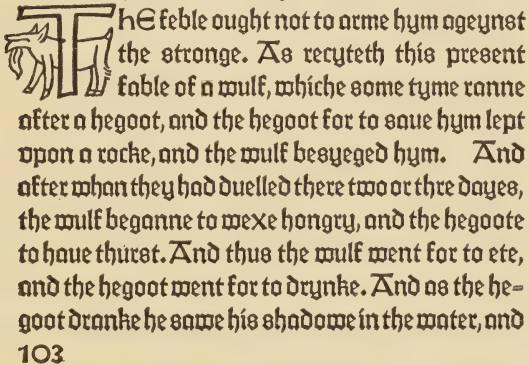 The feble ought not to arme hym ageynst
the stronge. As recyteth this present
fable of a wulf, whiche some tyme ranne
after a hegoot, and the hegoot for to saue hym lept
vpon a rocke, and the wulf besyeged hym. And
after whan they had duelled there two or thre dayes,
the wulf beganne to wexe hongry, and the hegoote
to haue thurst. And thus the wulf went for to ete,
and the hegoot went for to drynke. And as the he=
goot dranke he sawe his shadowe in the water, and
103